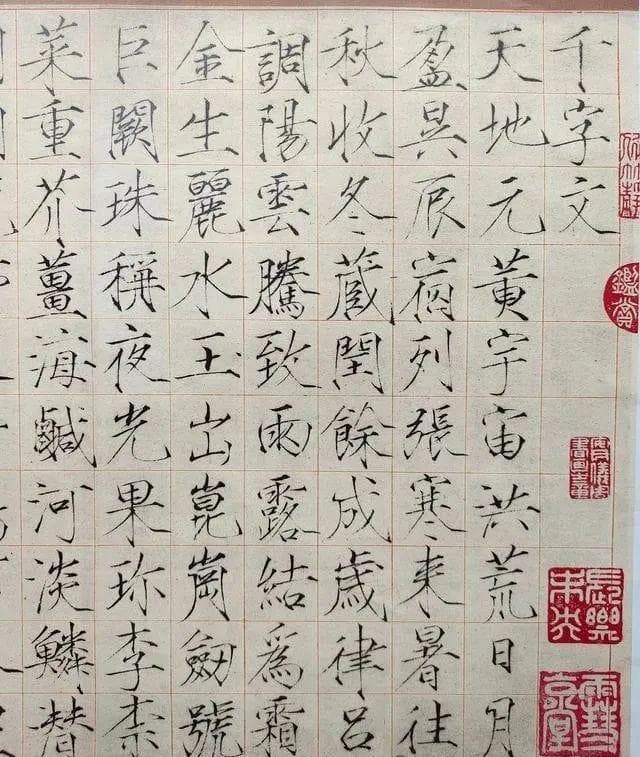 千字文
天地元黃宇宙洪荒日月
盈昃辰宿列張寒来暑往
秋收冬蔵閏餘成歳律呂
調陽雲騰致雨露結爲霜
金生麗水玉出崑崗劔號
巨闕珠稱夜光果珎李柰
菜重芥薑海鹹河淡鱗潜
鑑賞
長樂未央